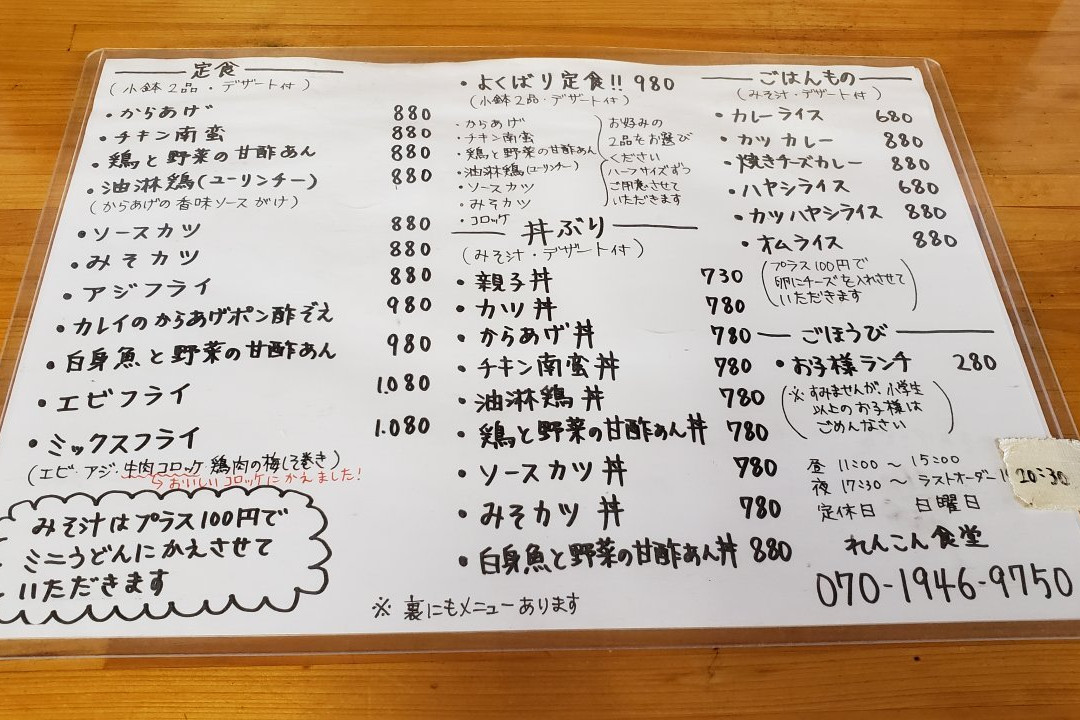 定食
(小鉢2品・デザート付)
・からあげ 880
・チキン南蛮 880
・鶏と野菜の甘酢あん 880
・油淋鶏(ユーリンチー) 880
(からあげの香味ソースがけ)
・ソースカツ 880
・みそカツ 880
・アジフライ 880
・カレイのからあげポン酢ぞえ 980
・白身魚と野菜の甘酢あん 980
・エビフライ 1.080
・ミックスフライ 1.080
(エビ・アジ・牛肉コロッケ 鶏肉の梅しそ巻き)
おいしいコロッケにかえました!
みそ汁はプラス100円で
ミニうどんにかえさせて
いただきます
・よくばり定食!! 980
(小鉢2品・デザート付)
・からあげ
・チキン南蛮
・鶏と野菜の甘酢あん
・油淋鶏(ユーリンチー)
・ソースカツ
・みそカツ
・コロッケ
お好みの
2品をお選び
ください
ハーフサイズずつ
ご用意させて
いただきます
丼ぶり
(みそ汁・デザート付)
・親子丼 730
・カツ丼 780
・からあげ丼 780
・チキン南蛮丼 780
・油淋鶏丼 780
・鶏と野菜の甘酢あん丼 780
・ソースカツ丼 780
・みそカツ丼 780
・白身魚と野菜の甘酢あん丼 880
※裏にもメニューあります
ごはんもの
(みそ汁・デザート付)
・カレーライス 680
・カツカレー 880
・焼きチーズカレー 880
・ハヤシライス 680
・カツハヤシライス 880
・オムライス 880
(プラス100円で
卵にチーズを入れさせて
いただきます)
ごほうび
・お子様ランチ 280
(※すみませんが、小学生
以上のお子様は
ごめんなさい)
昼 11:00 ~ 15:00
夜 17:30 ~ ラストオーダー 20:30
定休日 日曜日
れんこん食堂
070-1946-9750